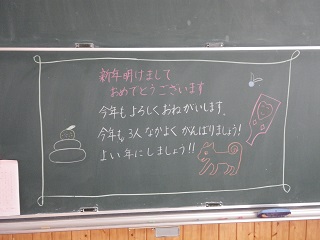 新年明けまして
おめでとうございます
今年もよろしくおねがいします。
今年も3人なかよくがんばりましょう!
よい年にしましょう!!